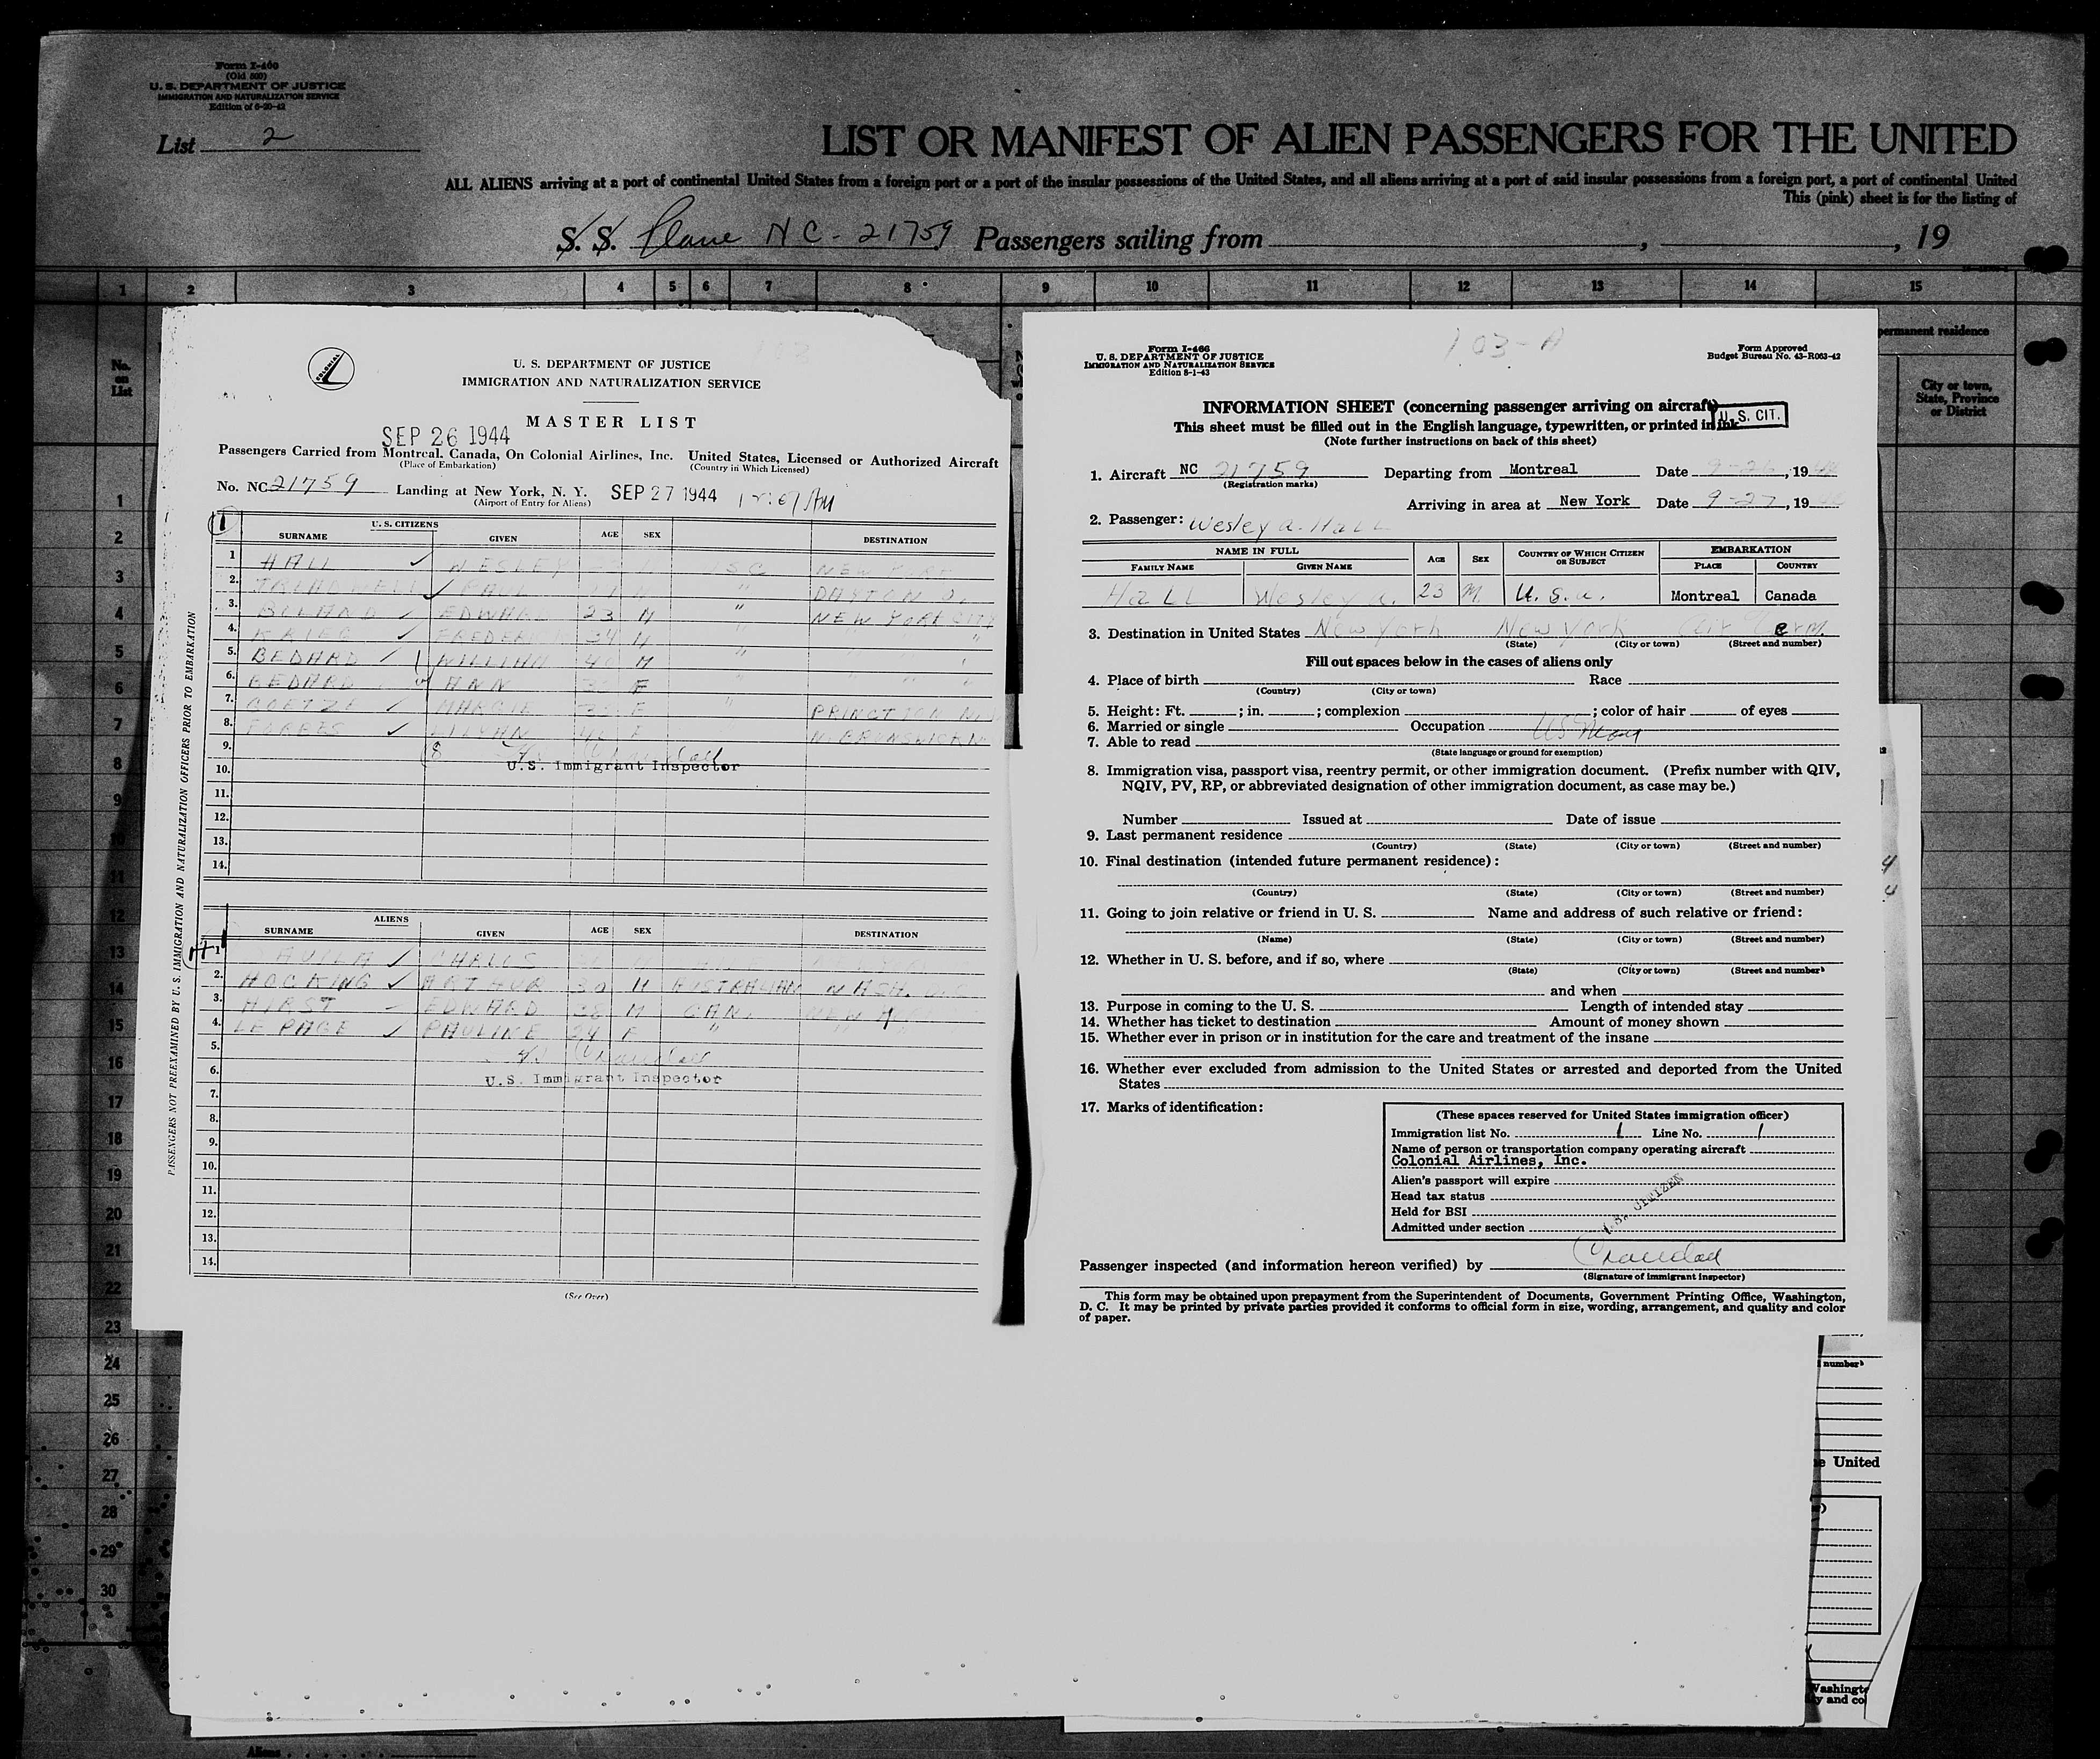 Form I-466
(Old 500)
U. S. DEPARTMENT OF JUSTICE
IMMIGRATION AND NATURALIZATION SERVICE
Edition of 6-20-42
List 2
LIST OR MANIFEST OF ALIEN PASSENGERS FOR THE UNITED
ALL ALIENS arriving at a port of continental United States from a foreign port or a port of the insular possessions of the United States, and all aliens arriving at a port of said insular possessions from a foreign port, a port of continental United
This (pink) sheet is for the listing of
S. S. Plane NC-21759 Passengers sailing from , , 19
1 2 3 4 5 6 7 8 9 10 11 12 13 14 15
No. on List
permanent residence
City or town, State, Province or District
1
2
3
4
5
6
7
8
9
10
11
12
13
14
15
16
17
18
19
20
21
22
23
24
25
26
27
28
29
30
COLONIAL
U. S. DEPARTMENT OF JUSTICE
IMMIGRATION AND NATURALIZATION SERVICE
MASTER LIST
SEP 26 1944
Passengers Carried from Montreal, Canada, On Colonial Airlines, Inc. United States, Licensed or Authorized Aircraft
(Place of Embarkation) (Country in Which Licensed)
No. NC 21759 Landing at New York, N. Y. SEP 27 1944 12:01 AM
(Airport of Entry for Aliens)
PASSENGERS NOT PREEXAMINED BY U. S. IMMIGRATION AND NATURALIZATION OFFICERS PRIOR TO EMBARKATION
1
U. S. CITIZENS
SURNAME GIVEN AGE SEX DESTINATION
1 HALL WESLEY USC NEW YORK
2. PAUL " DAYTON O.
3. BOLAND EDWARD 23 M " NEW YORK CITY
4. KRIEG FREDERICK 34 M " "
5. BEDARD WILLIAM 40 M "
6. BEDARD ANN F "
7. GOETZE MARGIE F " PRINCTON N.J.
8. FORBES LILYAN F N. BRUNSWICK N.
9. (8
10. U.S. Immigrant Inspector
11.
12.
13.
14.
ALIENS
SURNAME GIVEN AGE SEX DESTINATION
1 CHALIS
2. HOCKING ARTHUR 30 M AUSTRALIAN WASH. D.C
3. HIRST EDWARD 38 M CAN. NEW Y
4. LE PAGE PAULINE 24 F "
5. Crandall
6. U.S. Immigrant Inspector
7.
8.
9.
10.
11.
12.
13.
14.
(See Over)
Form I-466
U. S. DEPARTMENT OF JUSTICE
IMMIGRATION AND NATURALIZATION SERVICE
Edition 8-1-43
103-A
Form Approved
Budget Bureau No. 43-R063-42
INFORMATION SHEET (concerning passenger arriving on aircraft)
U. S. CIT.
This sheet must be filled out in the English language, typewritten, or printed in ink
(Note further instructions on back of this sheet)
1. Aircraft NC 21759 Departing from Montreal Date 9-26, 1944
(Registration marks)
Arriving in area at New York Date 9-27, 19
2. Passenger: Wesley A. Hall
NAME IN FULL AGE SEX COUNTRY OF WHICH CITIZEN OR SUBJECT EMBARKATION
FAMILY NAME GIVEN NAME PLACE COUNTRY
Hall Wesley A. 23 M U.S.A. Montreal Canada
3. Destination in United States New York New York
(State) (City or town) (Street and number)
Fill out spaces below in the cases of aliens only
4. Place of birth Race
(Country) (City or town)
5. Height: Ft. ; in. ; complexion ; color of hair of eyes
6. Married or single Occupation US Navy
7. Able to read
(State language or ground for exemption)
8. Immigration visa, passport visa, reentry permit, or other immigration document. (Prefix number with QIV,
NQIV, PV, RP, or abbreviated designation of other immigration document, as case may be.)
Number Issued at Date of issue
9. Last permanent residence
(Country) (State) (City or town) (Street and number)
10. Final destination (intended future permanent residence):
(Country) (State) (City or town) (Street and number)
11. Going to join relative or friend in U. S. Name and address of such relative or friend:
(Name) (State) (City or town) (Street and number)
12. Whether in U. S. before, and if so, where
(State) (City or town) (Street and number)
and when
13. Purpose in coming to the U. S. Length of intended stay
14. Whether has ticket to destination Amount of money shown
15. Whether ever in prison or in institution for the care and treatment of the insane
16. Whether ever excluded from admission to the United States or arrested and deported from the United
States
17. Marks of identification:
(These spaces reserved for United States immigration officer)
Immigration list No. 1 Line No. 1
Name of person or transportation company operating aircraft
Colonial Airlines, Inc.
Alien's passport will expire
Head tax status
Held for BSI
Admitted under section
U.S. CITIZEN
Passenger inspected (and information hereon verified) by Crandall
(Signature of immigrant inspector)
This form may be obtained upon prepayment from the Superintendent of Documents, Government Printing Office, Washington,
D. C. It may be printed by private parties provided it conforms to official form in size, wording, arrangement, and quality and color
of paper.
number)
e United
Washingt
y and co